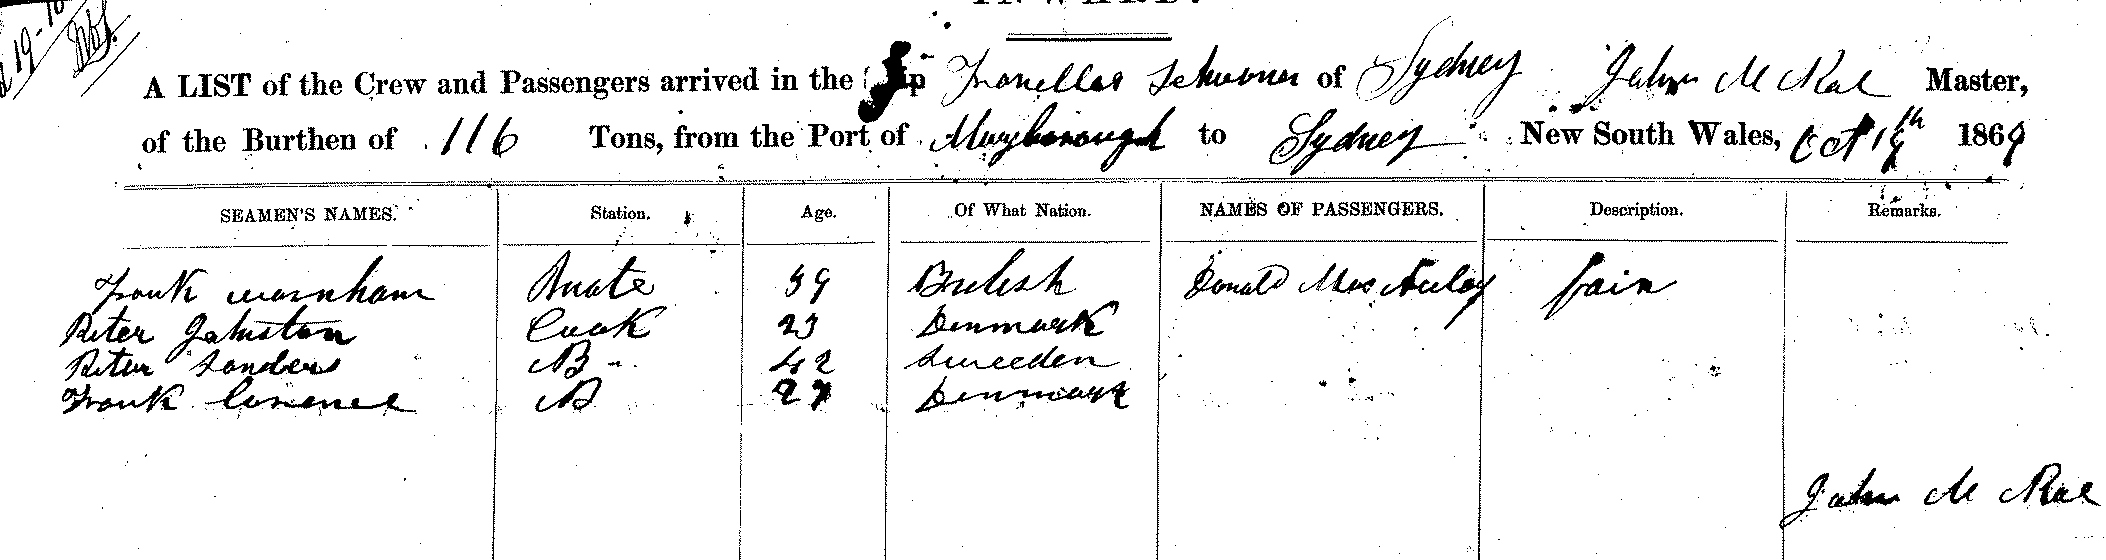 INWARD.
19-10
A LIST of the Crew and Passengers arrived in the Ship Schooner of Sydney John McRae Master,
of the Burthen of 116 Tons, from the Port of Maryborough to Sydney New South Wales, Oct 19th 1869
SEAMEN'S NAMES. Station. Age. Of What Nation. NAMES OF PASSENGERS. Description. Remarks.
Frank Warnham Mate 39 British Donald MacAulay
Peter Johnston Cook 23 Denmark
Peter Sanders AB 42 Sweeden
Frank AB 27 Denmark
John McRae